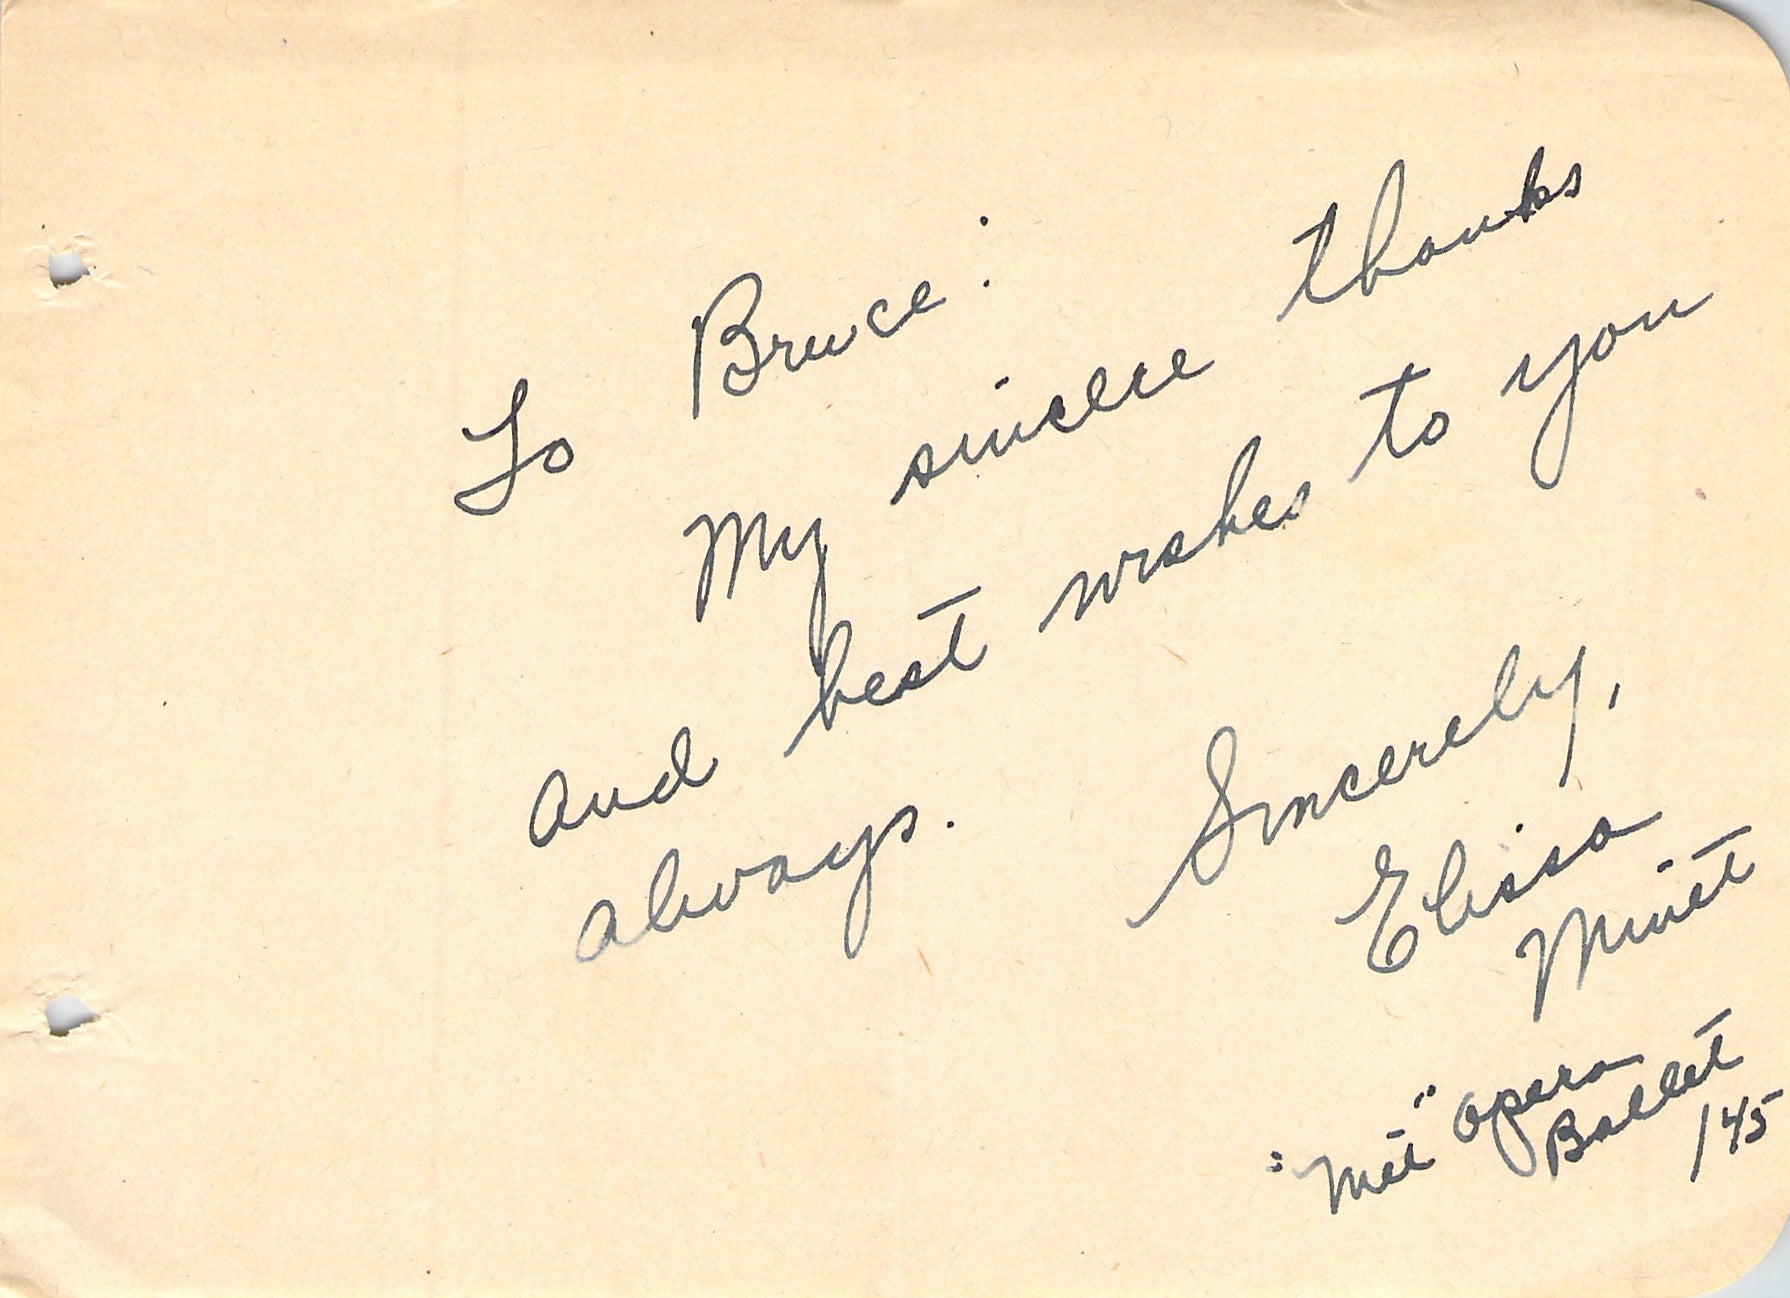 To Bruce:
My sincere thanks
and best wishes to you
always.
Sincerely,
Elissa
Minét
"Met" Opera
Ballet
/45